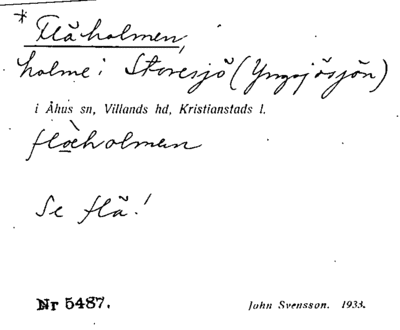 * Flåholmen,
holme i Storesjö (Yngsjösjön)
i Åhus sn, Villands hd, Kristianstads l.
flåholmen
Se flå!
Nr 5487.
John Svensson. 1933.